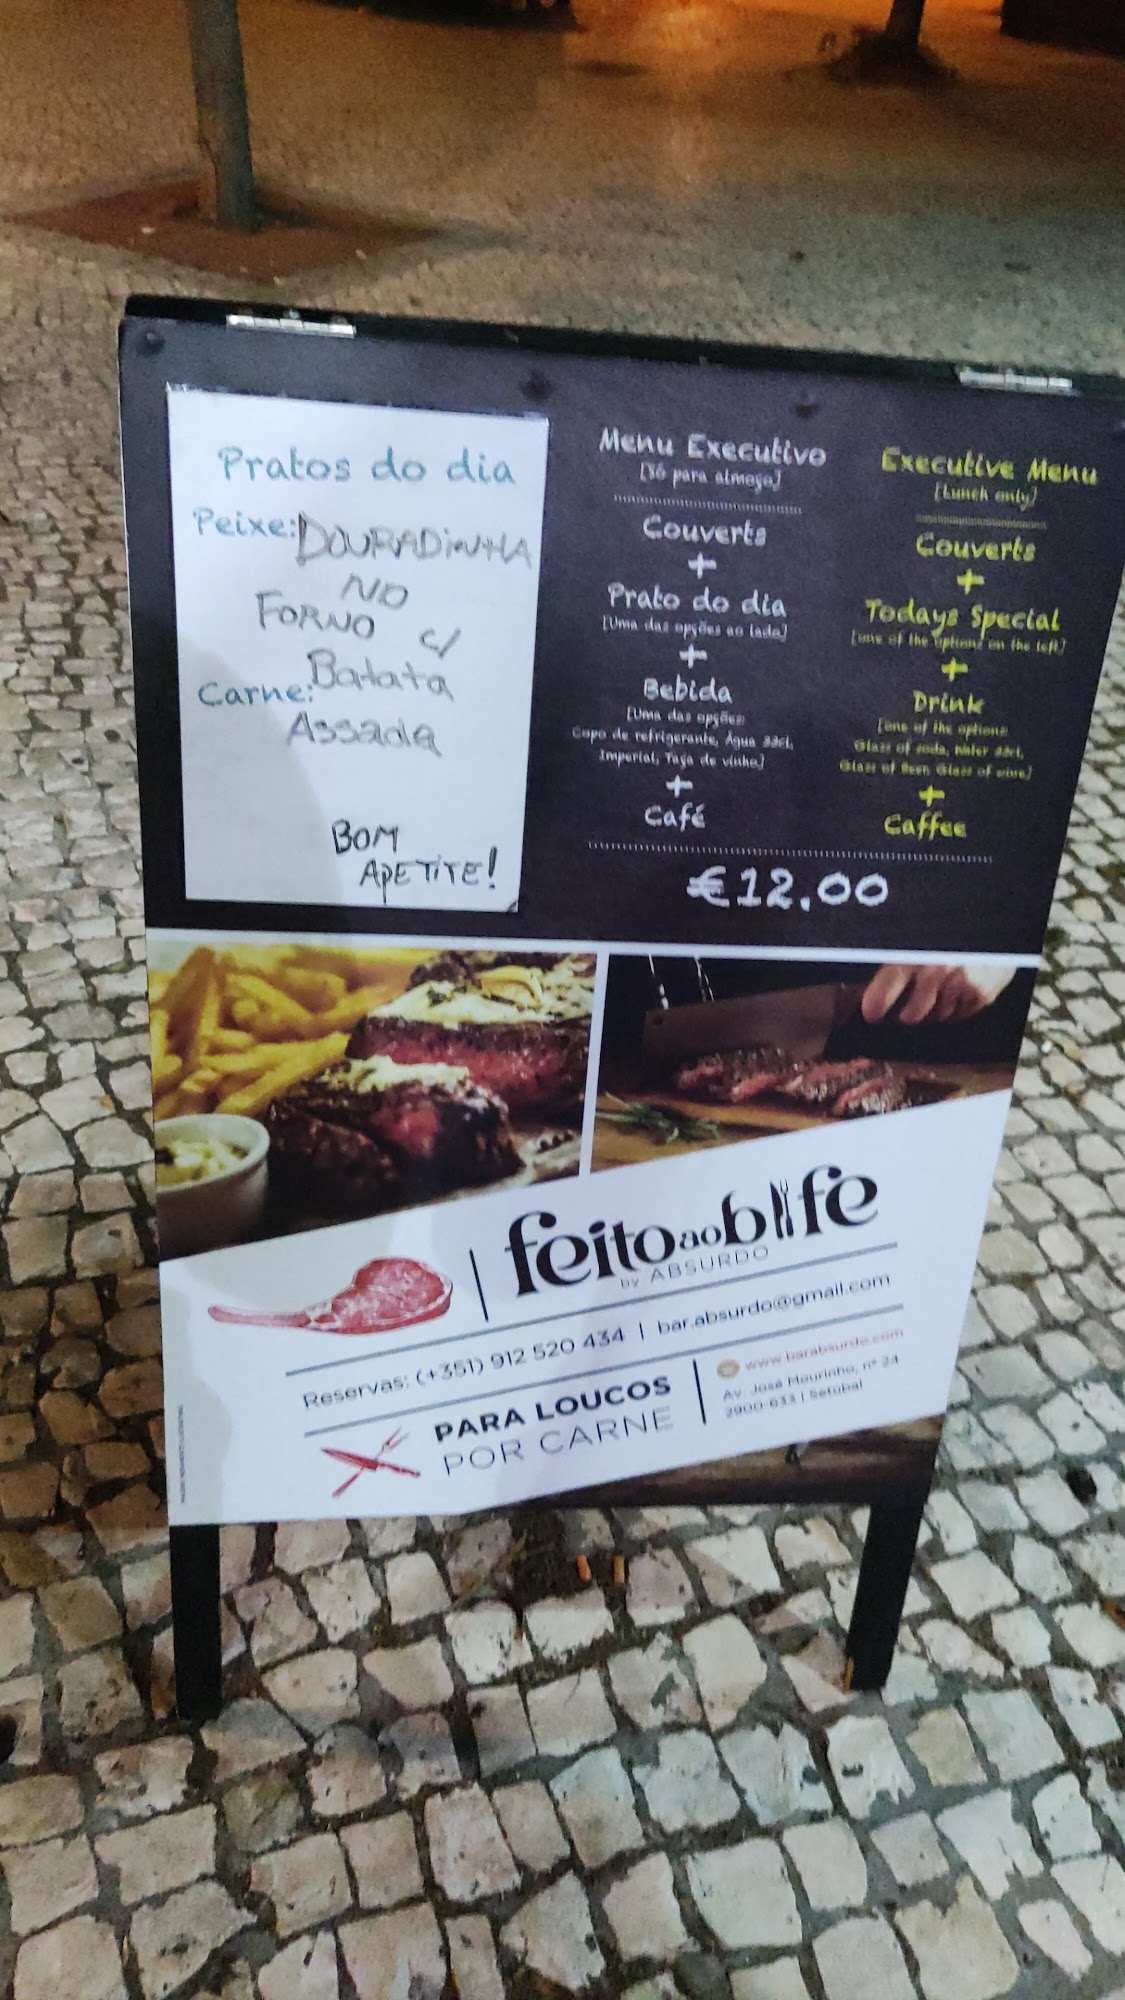 Pratos do dia
Peixe: DOURADINHA
NO
FORNO c/
Batata
Carne:
Assada
BOM
APETITE!
Menu Executivo
[Só para almoço]
Couverts
+
Prato do dia
[Uma das opções ao lado]
+
Bebida
[Uma das opções:
Copo de refrigerante, Água 33cl,
Imperial, Taça de vinho]
+
Café
Executive Menu
[Lunch only]
Couverts
+
Todays Special
[one of the options on the left]
+
Drink
[one of the options:
Glass of soda, Water 33cl,
Glass of Beer, Glass of wine]
+
Caffee
€12.00
feito ao bife
by ABSURDO
Reservas: (+351) 912 520 434 | bar.absurdo@gmail.com
PARA LOUCOS
POR CARNE
www.barabsurdo.com
Av. José Mourinho, nº 24
2900-633 | Setúbal